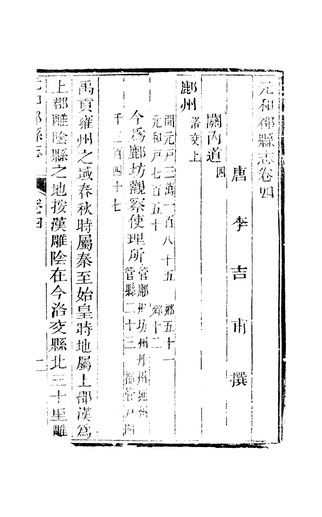 元和郡縣志卷四
唐李吉甫撰
關內道四
鄜州
洛交上
開元戶三萬一百八十五 鄉五十一
元和戶七百五十 鄉十二
今爲鄜坊觀察使理所
管鄜州坊州丹州延州
管縣二十三
千三百四十七
禹貢雍州之域春秋時屬秦至始皇時地屬上郡漢爲
上郡雕陰縣之地按漢雕陰在今洛交縣北三十里雕